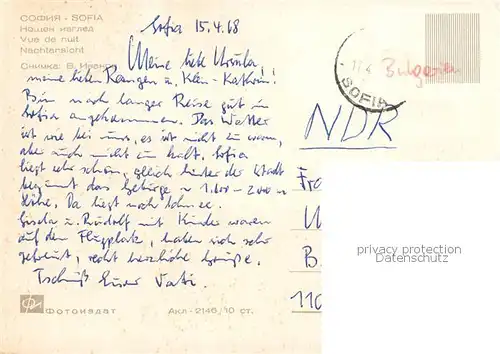 СОФИЯ - SOFIA
Нощен изглед
Vue de nuit
Nachtansicht
Снимка: В.
Sofia 15.4.68
Meine liebe Ursula,
meine lieben u. Klein-Kathrin!
Bin nach langer Reise gut in
Sofia angekommen. Das Wetter
ist wie bei uns, es ist nicht zu warm,
aber auch nicht zu kalt. Sofia
liegt sehr schön, gleich hinter der Stadt
beginnt das Gebirge 1.800 - 2000 m
Höhe. Da liegt noch Schnee.
Gisela u. Rudolf mit Kinder waren
auf dem Flugplatz, haben sich sehr
gefreut, recht herzliche Grüße.
Tschüß Euer Vati.
SOFIA
Bulgarien
NDR
Fra
U
B
110
privacy protection
Datenschutz
Фотоиздат
Акл-2146, 10 ст.